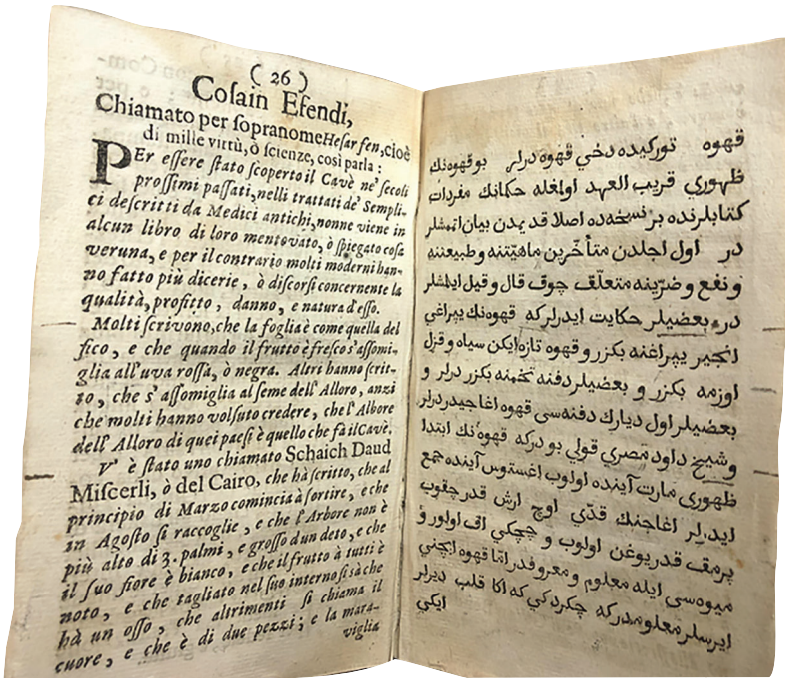 ( 26 )
Coſain Efendi,
Chiamato per ſopranome Heſar fen, cioè
di mille virtù, ò ſcienze, così parla :
PEr eſſere ſtato ſcoperto il Cavè ne' ſecoli
proſſimi paſſati, nelli trattati de' Sempli-
ci deſcritti da Medici antichi, non ne viene in
alcun libro di loro mentovato, ò ſpiegato coſa
veruna, e per il contrario molti moderni han-
no fatto più dicerie, ò diſcorſi concernente la
qualità, profitto, danno, e natura d'eſſo.
Molti ſcrivono, che la foglia è come quella del
fico, e che quando il frutto è freſco s'aſſomi-
glia all'uva roſſa, ò negra. Altri hanno ſcrit-
to, che s'aſſomiglia al ſeme dell'Alloro, anzi
che molti hanno volſuto credere, che l'Albore
dell'Alloro di quei paeſi è quello che fà il Cavè.
V' è ſtato uno chiamato Schaich Daud
Miſcerli, ò del Cairo, che hà ſcritto, che al
principio di Marzo comincia à ſortire, e che
in Agoſto ſi raccoglie, e che l'Arbore non è
più alto di 3. palmi, e groſſo d'un deto, e che
il ſuo fiore è bianco, e che il frutto à tutti è
noto, e che tagliato nel ſuo interno ſi sà che
hà un oſſo, che altrimenti ſi chiama il
cuore, e che è di due pezzi; e la mara-
viglia
قهوه توركيده دخي قهوه درلر بو قهوه‌نك
ظهوري قريب العهد اولمغله حكمانك مفردات
كتابلرنده بر نسخه‌ده اصلا قديمدن بيان اتممشلر
در اول اجلدن متأخرين ماهيتنه وطبيعتنه
ونفع وضررينه متعلق چوق قال وقيل ايلمشلر
در بعضيلر حكايت ايدرلركه قهوه‌نك يپراغي
انجير يپراغنه بكزر وقهوه تازه ايكن سياه وقزل
اوزمه بكزر و بعضيلر دفنه تخمنه بكزر درلر و
بعضيلر اول ديارك دفنه‌سى قهوه اغاجيدر درلر
وشيخ داود مصري قولي بودركه قهوه‌نك ابتدا
ظهوري مارت آينده اولوب اغستوس آينده جمع
ايدرلر اغاجنك قدي اوچ ارش قدر چقوب
پرمق قدر يوغن اولوب و چچكي اق اولور و
ميوه‌سى ايله معلوم ومعروفدر اما قهوه ايچني
ايرسلر معلومدركه چكردكي كه اكا قلب ديرلر
ايكي